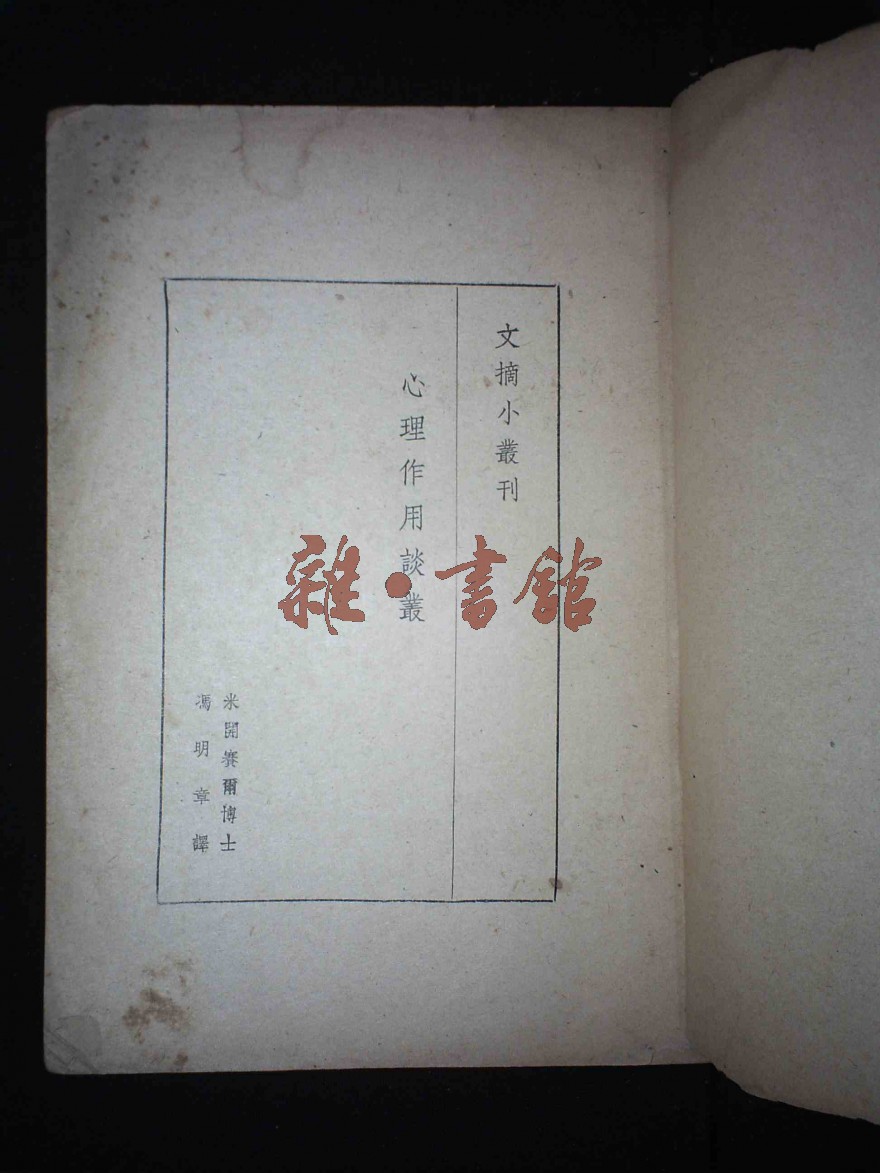 文摘小叢刊
心理作用談叢
米開賽爾博士
馮明章譯
雜·書館